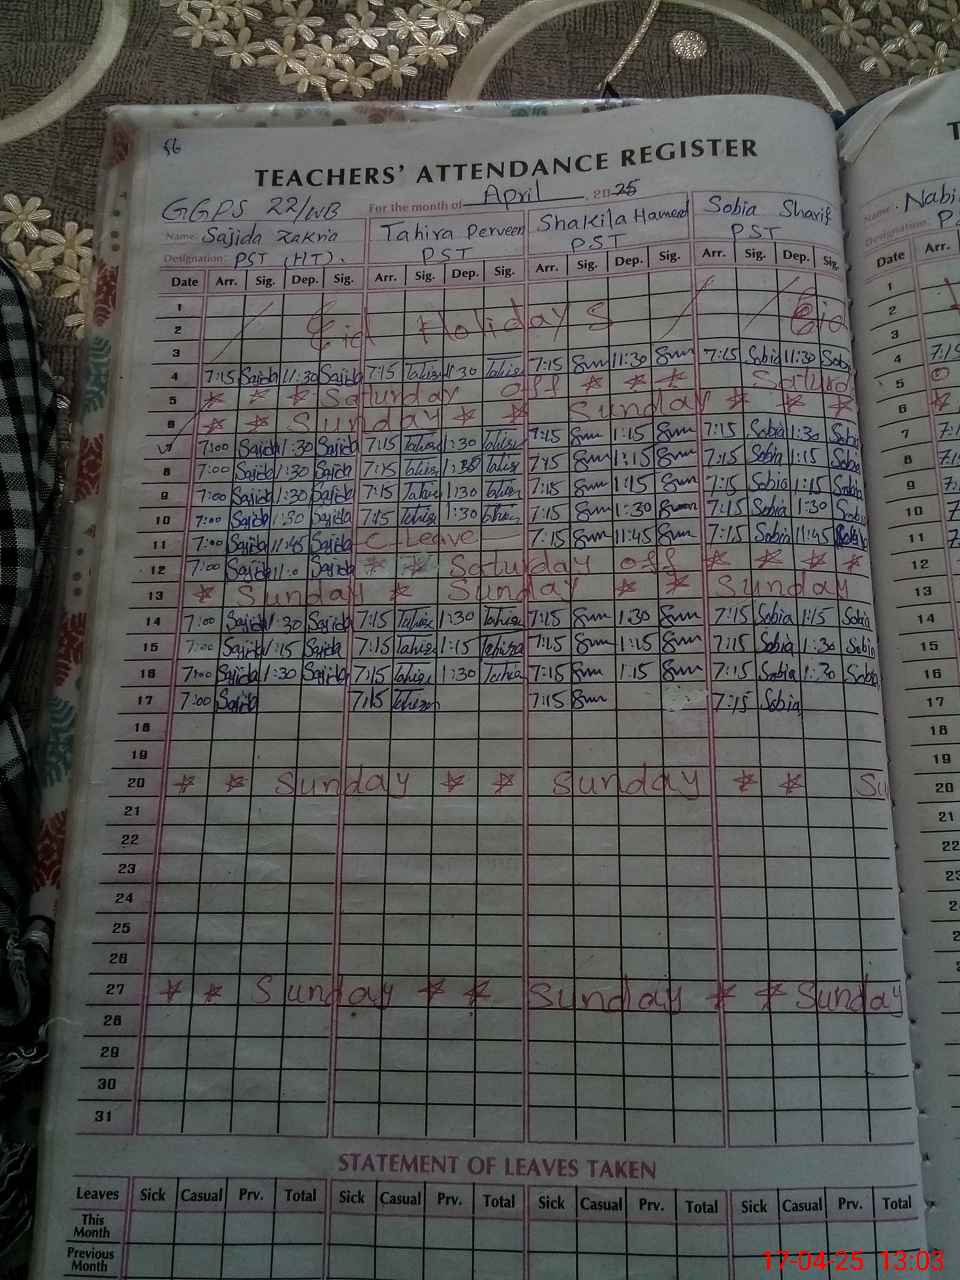 86
TEACHERS' ATTENDANCE REGISTER
GGPS 22/WB For the month of April, 2025
Name: Sajida Zakria Tahira Perveen Shakila Hameed Sobia Sharif
Designation: PST (HT). PST PST PST
Date Arr. Sig. Dep. Sig. Arr. Sig. Dep. Sig. Arr. Sig. Dep. Sig. Arr. Sig. Dep. Sig.
1
2 Eid Holidays Eid
3
4 7:15 Sajida 11:30 Sajida 7:15 Tahira 11:30 Tahira 7:15 11:30 7:15 Sobia 11:30 Sobia
5 * * * Saturday off * * * Saturd
6 * * Sunday * * Sunday * * *
7 7:00 Sajida 1:30 Sajida 7:15 Tahira 1:30 Tahira 7:15 1:15 7:15 Sobia 1:30 Sobia
8 7:00 Sajida 1:30 Sajida 7:15 Tahira Tahira 7:15 1:15 7:15 Sobia 1:15 Sobia
9 7:00 Sajida 1:30 Sajida 7:15 Tahira 1:30 Tahira 7:15 1:15 7:15 Sobia 1:15 Sobia
10 7:00 Sajida 1:30 Sajida 7:15 Tahira 1:30 Tahira 7:15 1:30 7:15 Sobia 1:30 Sobia
11 7:00 Sajida 11:45 Sajida C Leave 7:15 11:45 7:15 Sobia 11:45 Sobia
12 7:00 Sajida 11:0 Sajida * * Saturday off * * * *
13 * Sunday * Sunday * * Sunday
14 7:00 Sajida 1:30 Sajida 7:15 Tahira 1:30 Tahira 7:15 1:30 7:15 Sobia 1:15 Sobia
15 7:00 Sajida 1:15 Sajida 7:15 Tahira 1:15 Tahira 7:15 1:15 7:15 Sobia 1:30 Sobia
16 7:00 Sajida 1:30 Sajida 7:15 Tahira 1:30 Tahira 7:15 1:15 7:15 Sobia 1:30 Sobia
17 7:00 Sajida 7:15 Tahira 7:15 7:15 Sobia
18
19
20 * * Sunday * * Sunday * * Su
21
22
23
24
25
26
27 * * Sunday * * Sunday * * Sunday
28
29
30
31
STATEMENT OF LEAVES TAKEN
Leaves Sick Casual Prv. Total Sick Casual Prv. Total Sick Casual Prv. Total Sick Casual Prv. Total
This Month
Previous Month
Name: Nabi
Designation:
Date Arr.
1
2
3
4 7:15
5
6 *
7
8
9
10
11
12
13
14
15
16
17
18
19
20
21
22
23
17-04-25 13:03